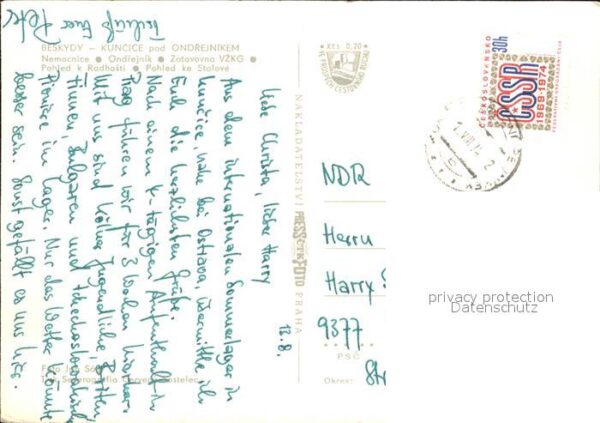 BESKYDY – KUNČICE pod ONDŘEJNÍKEM
Nemocnice • Ondřejník • Zotavovna VŽKG •
Pohled k Radhošti • Pohled ke Stolové
12.8.
Liebe Christa, lieber Harry
Aus dem internationalen Sommerlager in
Kunčice, nahe bei Ostrava, übermittle ich
Euch die herzlichsten Grüße.
Nach einem 4-tägigen Aufenthalt in
Prag fuhren wir für 3 Wochen hierher.
Mit uns sind Jugendliche, Briten,
Finnen, Bulgaren und tschechoslowakische
Pioniere im Lager. Nur das Wetter könnte
besser sein. Sonst gefällt es uns hier.
Euer Peter
NAKLADATELSTVÍ PRESSFOTO PRAHA
KčS 0,20
ČESKOSLOVENSKO
30h
ČSSR
1969-1974
NDR
Herrn
Harry
9377
PSČ
Okres:
privacy protection
Datenschutz